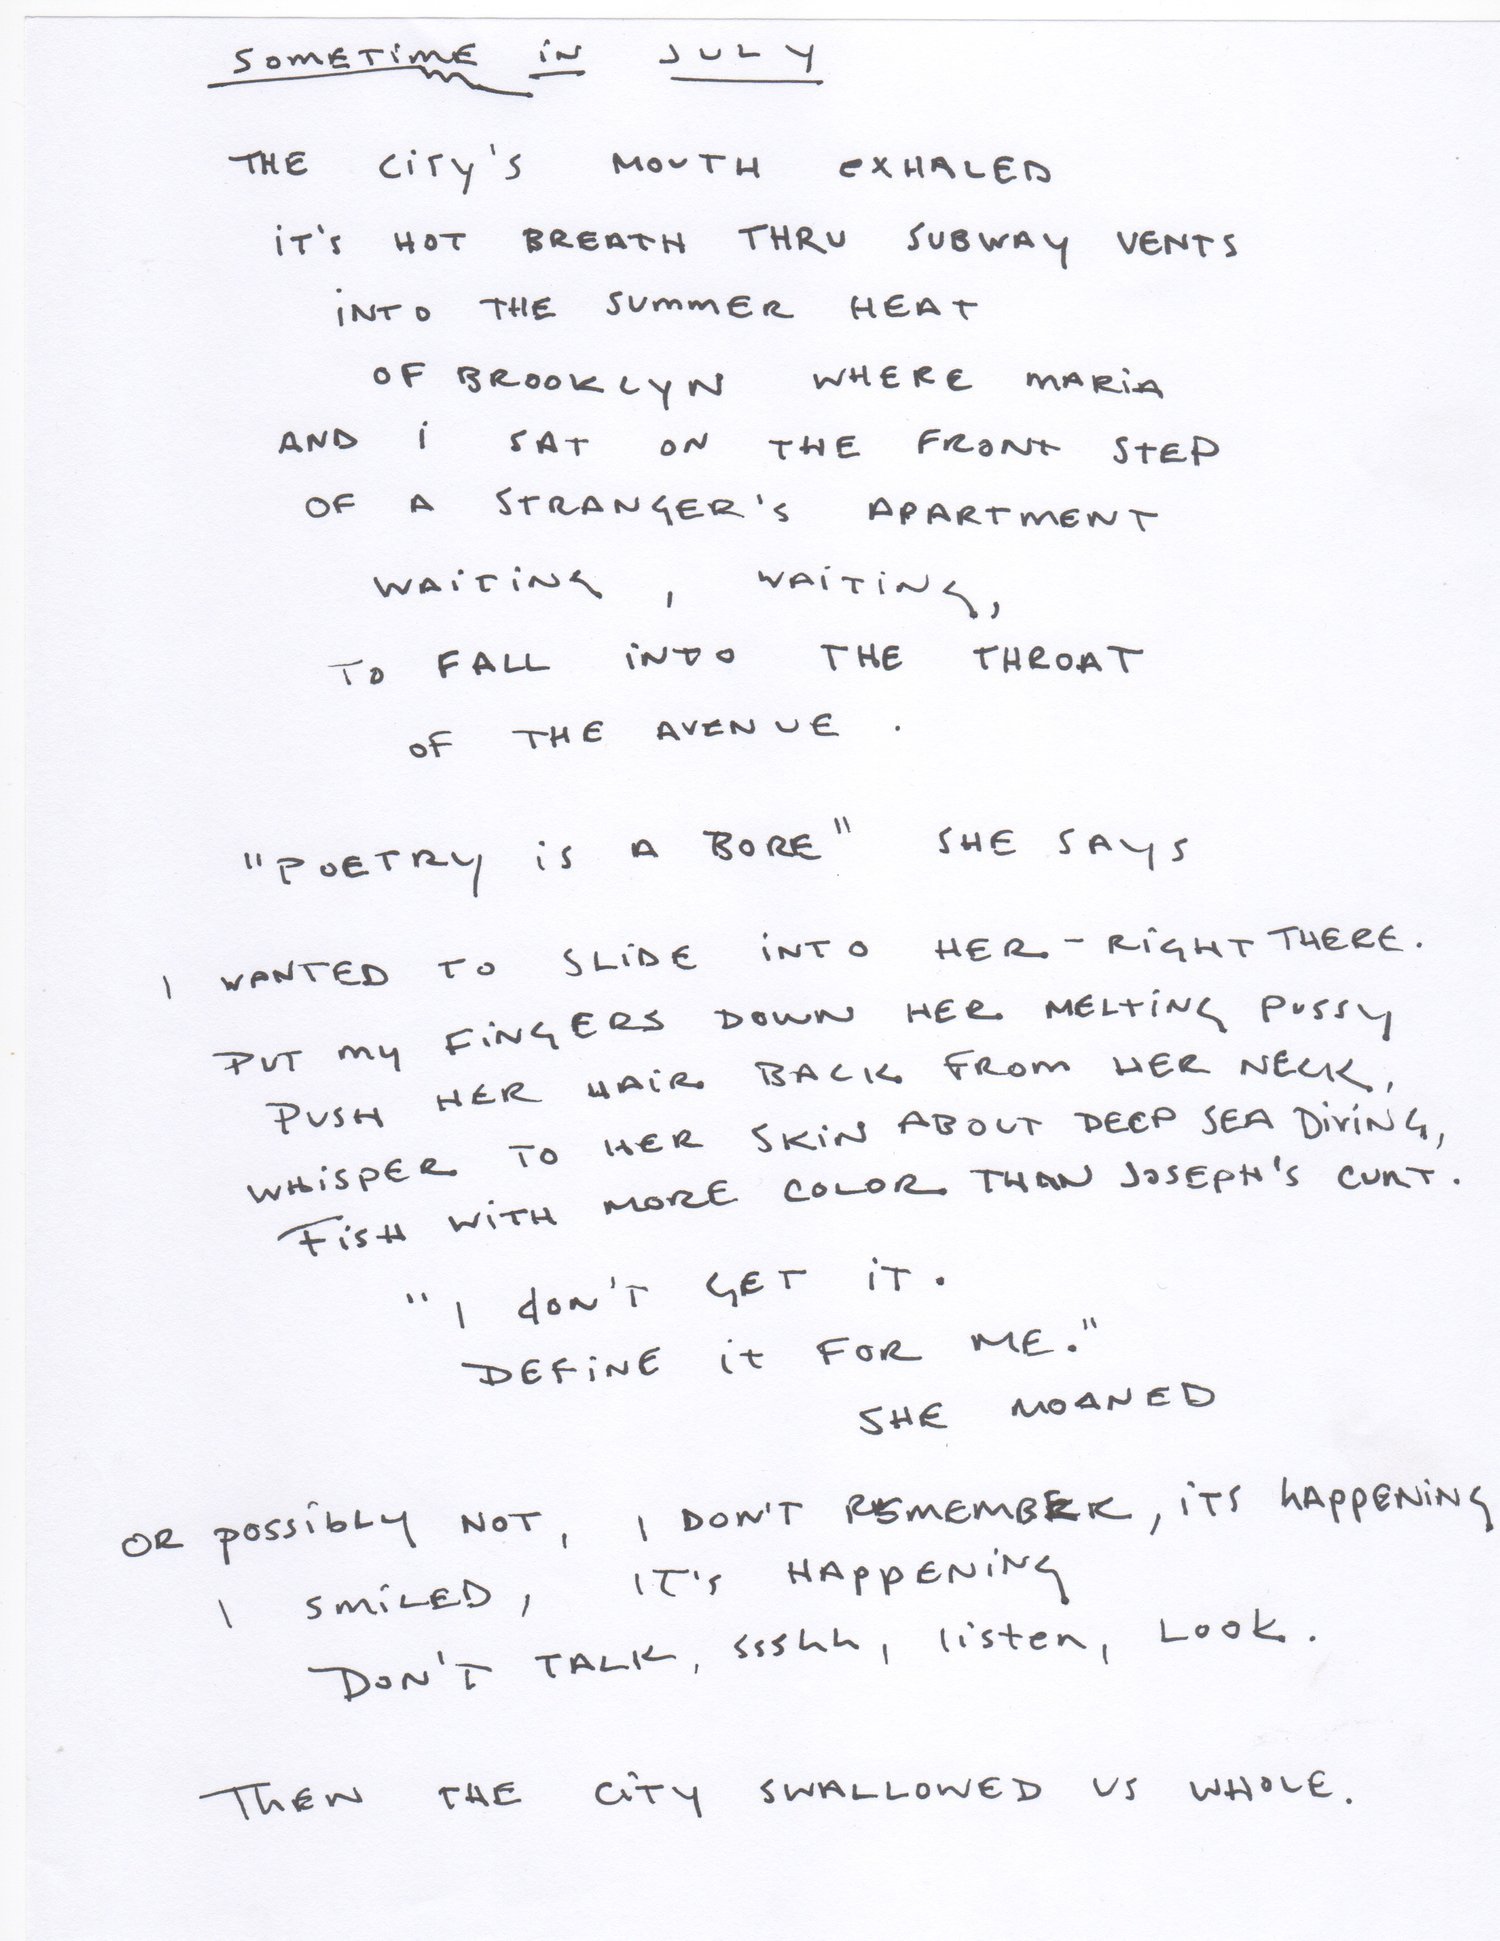 SOMETIME IN JULY
THE CITY'S MOUTH EXHALED
IT'S HOT BREATH THRU SUBWAY VENTS
INTO THE SUMMER HEAT
OF BROOKLYN WHERE MARIA
AND I SAT ON THE FRONT STEP
OF A STRANGER'S APARTMENT
WAITING, WAITING,
TO FALL INTO THE THROAT
OF THE AVENUE.
"POETRY IS A BORE" SHE SAYS
I WANTED TO SLIDE INTO HER - RIGHT THERE.
PUT MY FINGERS DOWN HER MELTING PUSSY
PUSH HER HAIR BACK FROM HER NECK,
WHISPER TO HER SKIN ABOUT DEEP SEA DIVING,
FISH WITH MORE COLOR THAN JOSEPH'S
"I DON'T GET IT.
DEFINE IT FOR ME."
SHE MOANED
OR POSSIBLY NOT, I DON'T REMEMBER, ITS HAPPENING
I SMILED, IT'S HAPPENING
DON'T TALK, SSSHH, listen, LOOK.
THEN THE CITY SWALLOWED US WHOLE.